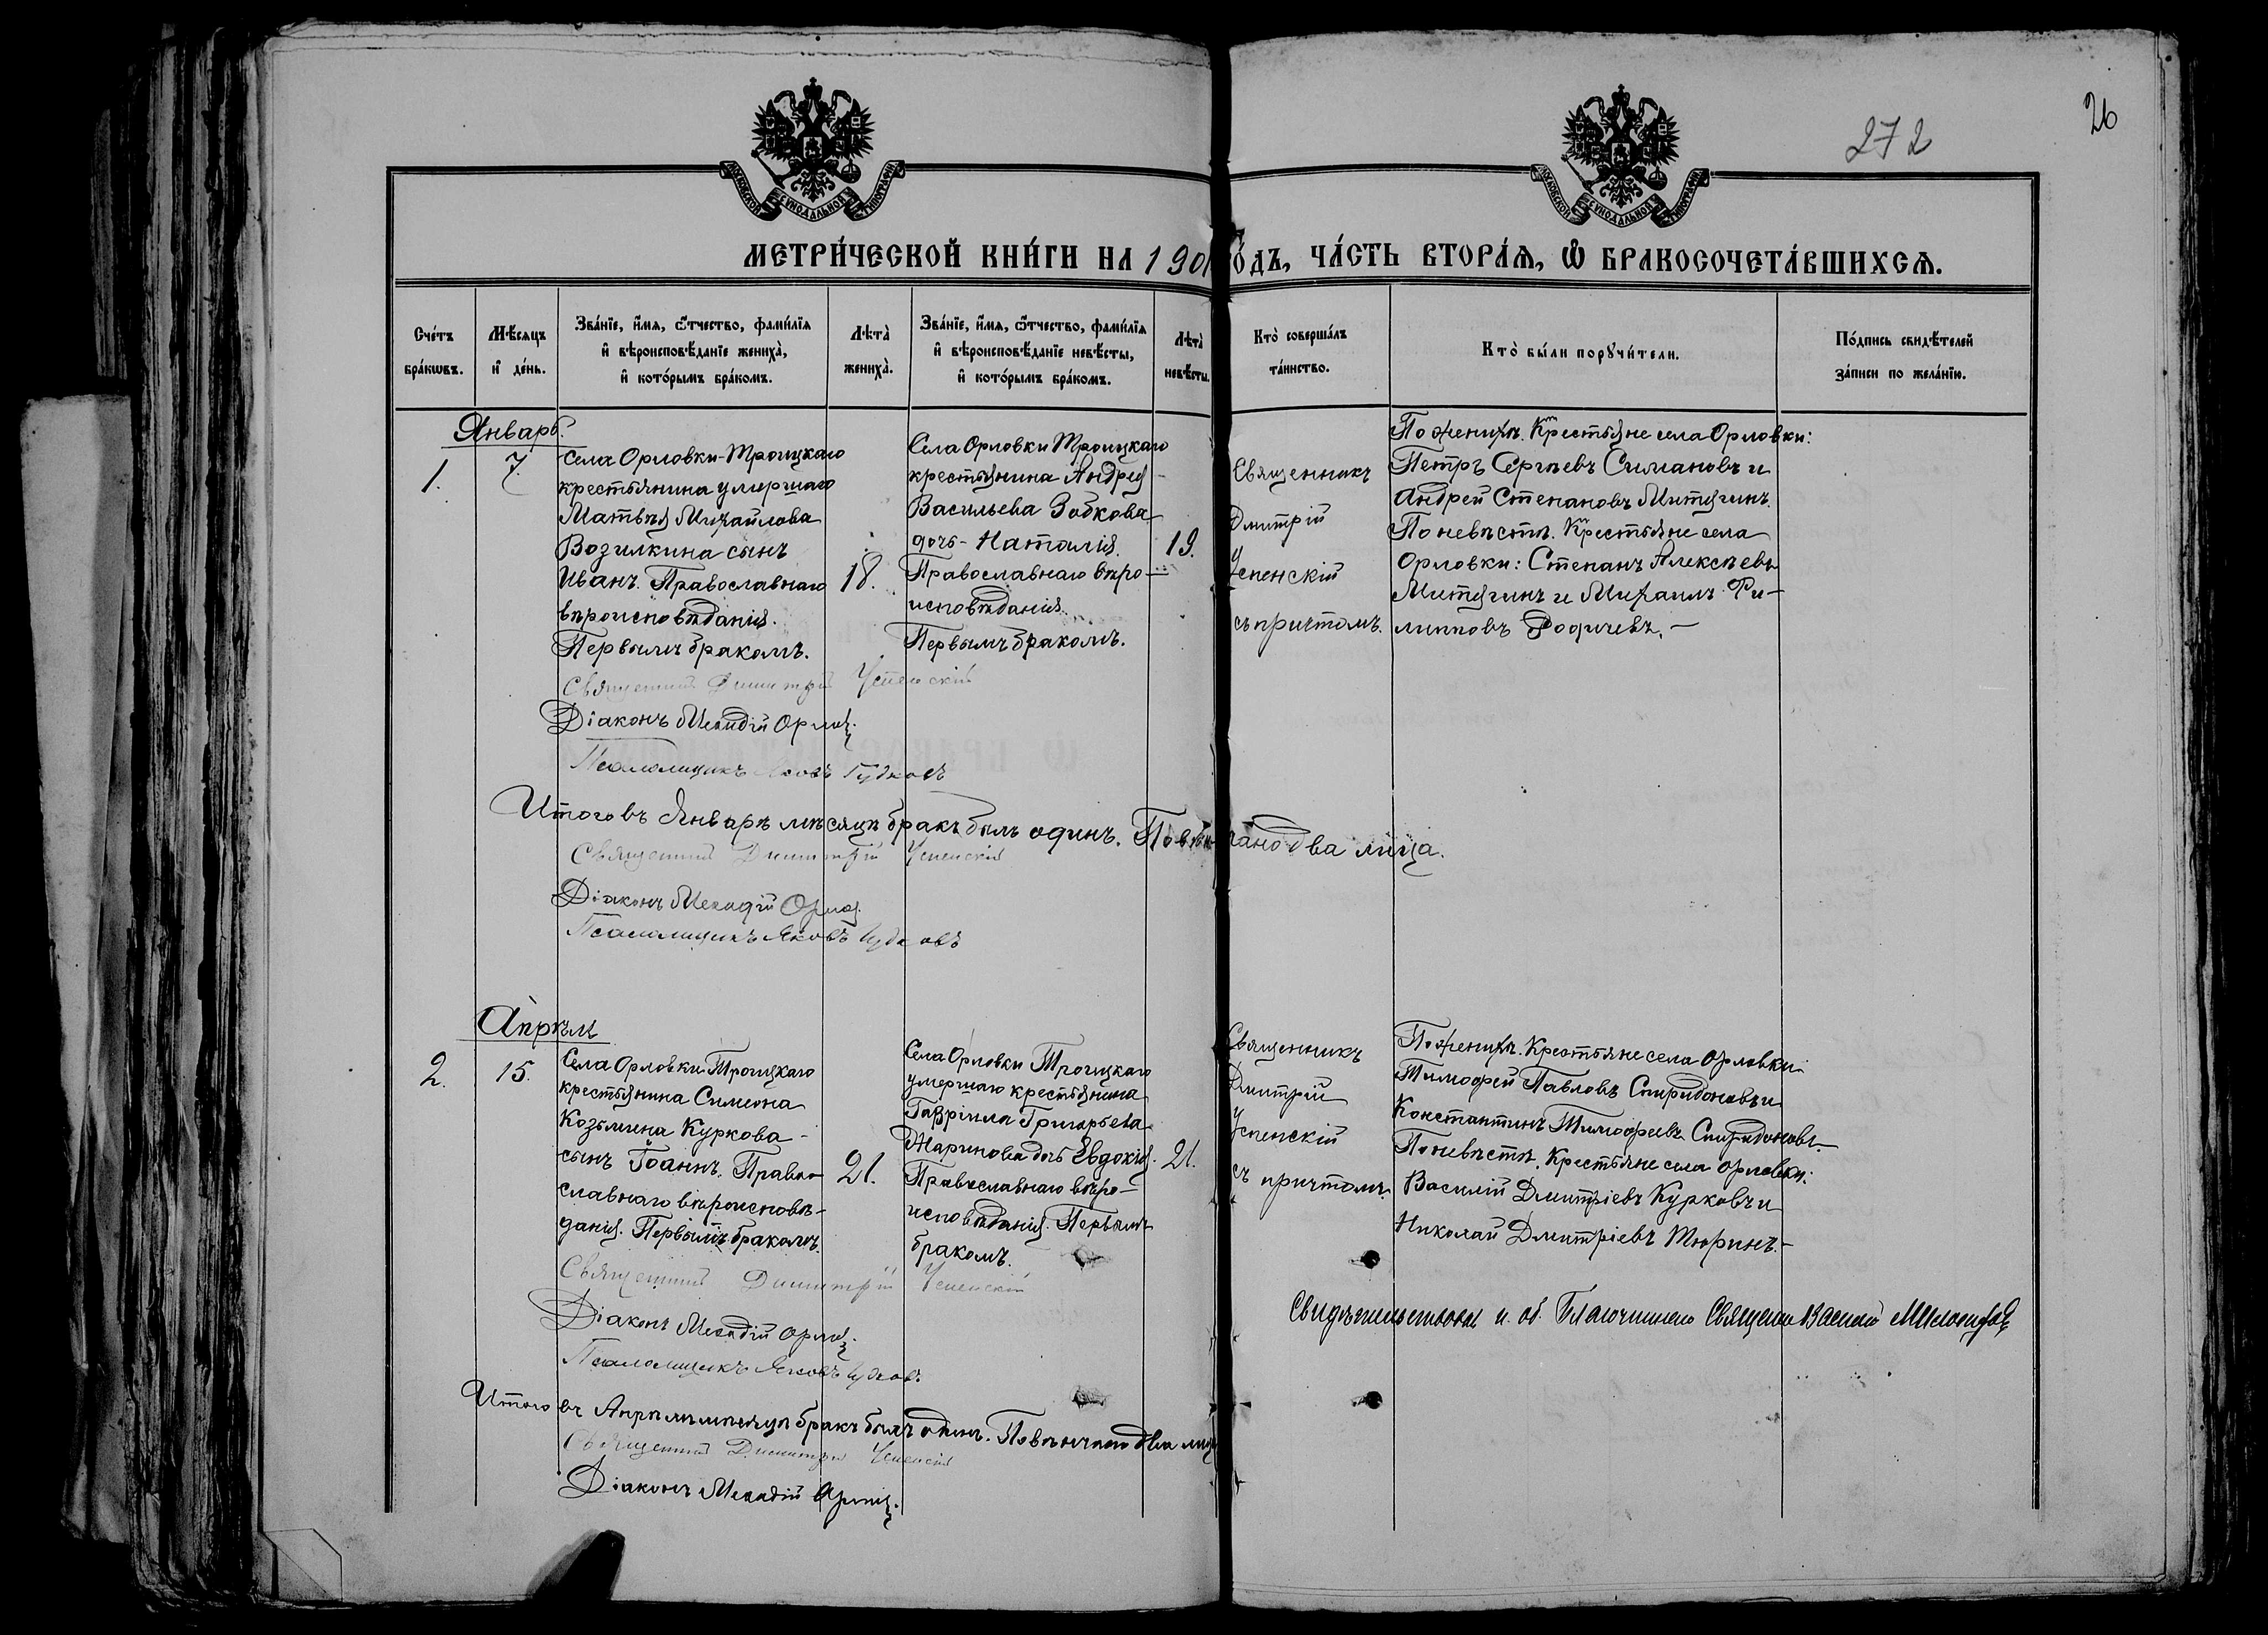 26
272
МОСКОВСКОЙ СѴНОДАЛЬНОЙ ТИПОГРАФІИ
МОСКОВСКОЙ СѴНОДАЛЬНОЙ ТИПОГРАФІИ
МЕТРИ́ЧЕСКОЙ КНИ́ГИ НА 1901 ГО́ДЪ, ЧА́СТЬ ВТОРА́Ѧ, Ѽ БРАКОСОЧЕТА́ВШИХСѦ.
Сче́тъ
бра́кѡвъ.
Мѣ́сяцъ
и҆ де́нь.
Зва́нїе, и҆́мя, ѻ҆́тчество, фами́лїя
и҆ вѣроисповѣ́данїе жениха̀,
и҆ кото́рымъ бра́комъ.
Лѣта̀
жениха̀.
Зва́нїе, и҆́мя, ѻ҆́тчество, фами́лїя
и҆ вѣроисповѣ́данїе невѣ́сты,
и҆ кото́рымъ бра́комъ.
Лѣта̀
невѣ́сты.
Кто̀ соверша́лъ
та́инство.
Кто̀ бы́ли порꙋчи́тели.
По́дпись свидѣ́телей
за́писи по жела́нїю.
Январь.
1.
7.
Села Орловки-Троицкаго
крестьянина умершаго
Матвѣя Михайлова
Возилкина сынъ
Иванъ. Православнаго
вѣроисповѣданія.
Первымъ бракомъ.
18.
Села Орловки Троицкаго
крестьянина Андрея
Васильева Зобкова
дочь - Наталія.
Православнаго вѣро-
исповѣданія.
Первымъ бракомъ.
19.
Священникъ
Дмитрій
Успенскій
съ причтомъ.
По женихѣ. Крестьяне села Орловки:
Петръ Сергѣевъ Симановъ и
Андрей Степановъ Митягинъ.
По невѣстѣ. Крестьяне села
Орловки: Степанъ Алексѣевъ
Митягинъ и Михаилъ Фи-
липповъ
Священникъ Димитрій Успенскій
Діаконъ Орловъ.
Псаломщикъ Яковъ
Итого въ Январѣ мѣсяцѣ бракъ былъ одинъ. Повѣнчано два лица.
Священникъ Димитрій Успенскій
Діаконъ Орловъ.
Псаломщикъ Яковъ
Апрѣль
2.
15.
Села Орловки Троицкаго
крестьянина Симеона
Козьмина Куркова -
сынъ Іоаннъ. Право-
славнаго вѣроисповѣ-
данія. Первымъ бракомъ.
21.
Села Орловки Троицкаго
умершаго крестьянина
Гавріила Григорьева
Жаринова дочь Евдокія.
Православнаго вѣро-
исповѣданія. Первымъ
бракомъ.
21.
Священникъ
Дмитрій
Успенскій
съ причтомъ.
По женихѣ. Крестьяне села Орловки:
Тимофей Павловъ Спиридоновъ и
Константинъ Тимофеевъ Спиридоновъ.
По невѣстѣ. Крестьяне села Орловки:
Василій Дмитріевъ Курковъ и
Николай Дмитріевъ Тюринъ.-
Священникъ Димитрій Успенскій
Діаконъ Орловъ.
Псаломщикъ Яковъ
и. об. Благочиннаго Священникъ Василій
Итого въ Апрѣлѣ мѣсяцѣ бракъ былъ одинъ. Повѣнчано два лица
Священникъ Димитрій Успенскій
Діаконъ Орловъ.